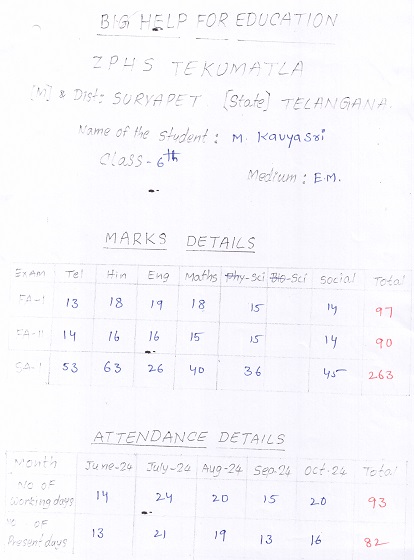 BIG HELP FOR EDUCATION
ZPHS TEKUMATLA
[M] & Dist: SURYAPET [State] TELANGANA.
Name of the Student: M. Kavyasri
Class - 6th
Medium: E.M.
MARKS DETAILS
Exam Tel Hin Eng Maths Phy-Sci Bio-Sci Social Total
FA-I 13 18 19 18 15 14 97
FA-II 14 16 16 15 15 14 90
SA-I 53 63 26 40 36 45 263
ATTENDANCE DETAILS
Month June-24 July-24 Aug-24 Sep-24 Oct-24 Total
No of
Working days 14 24 20 15 20 93
of
Present days 13 21 19 13 16 82